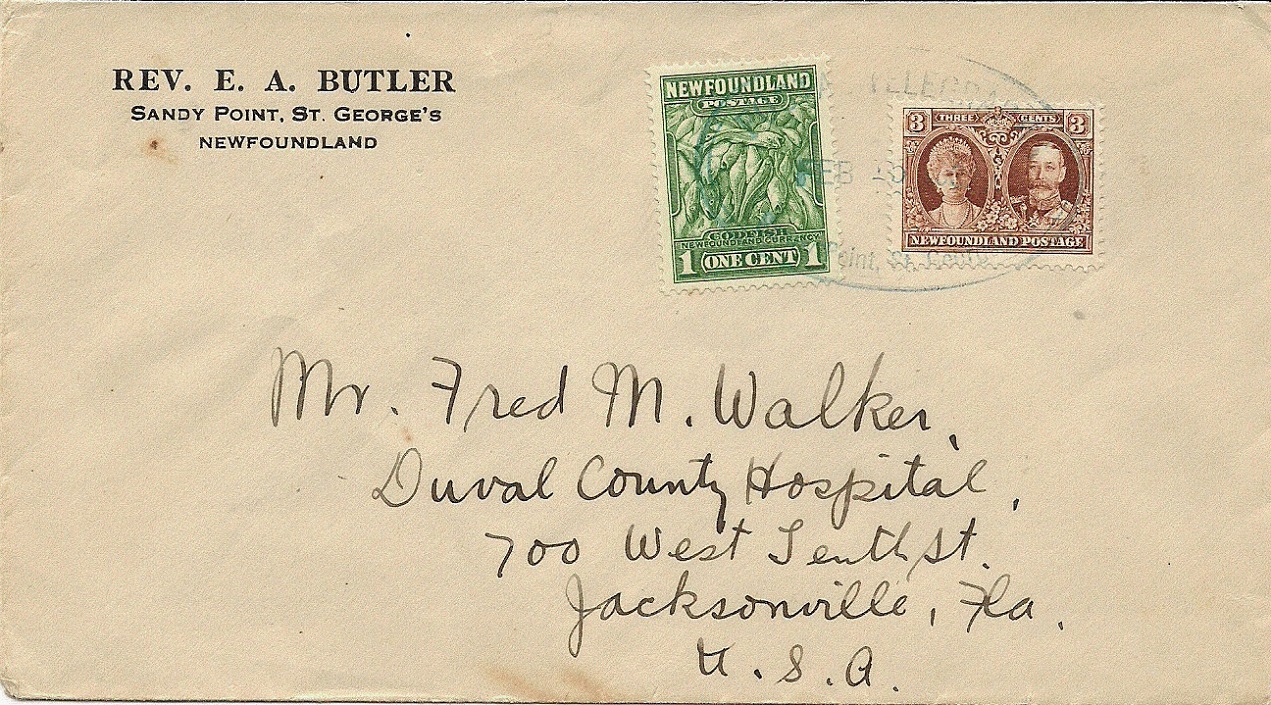 REV. E. A. BUTLER
SANDY POINT, ST. GEORGE'S
NEWFOUNDLAND
NEWFOUNDLAND
POSTAGE
CODFISH
NEWFOUNDLAND CURRENCY
1 ONE CENT 1
3 THREE CENTS 3
NEWFOUNDLAND POSTAGE
FEB
Point, St.
Mr. Fred M. Walker,
Duval County Hospital,
700 West Tenth St.
Jacksonville, Fla.
U.S.A.